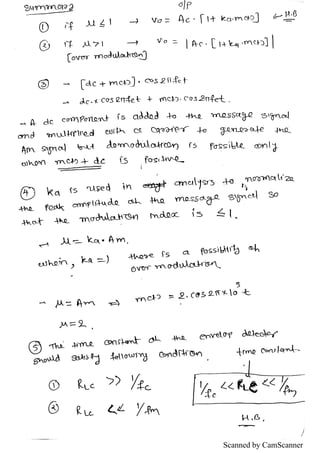 Summary o/p
① if μ ≤ 1 → Vo = Ac.[1+ka.m(t)] ← M.B
② if μ > 1 → Vo = |Ac.[1+ka.m(t)]|
[over modulation]
③ - [dc + m(t)]. cos2πfct
- dc. cos2πfct + m(t). cos2πfct.
- A dc component is added to the message signal
and multiplied with a carrier to generate the
Am signal but demodulation is possible only
when m(t) + dc is positive
④ ka is used in analysis to normalize
the peak amplitude of the message signal so
that the modulation index is ≤ 1.
μ = ka.Am.
when, ka => there is a possibility of
over modulation
- μ = Am => m(t) = 2.cos2π×10⁵t
μ = 2.
⑤ The time constant of the envelop detector
should satisfy following condition. time constant-
① RLC >> 1/fc 1/fc << RLC << 1/fm
② RLC << 1/fm M.B.
Scanned by CamScanner